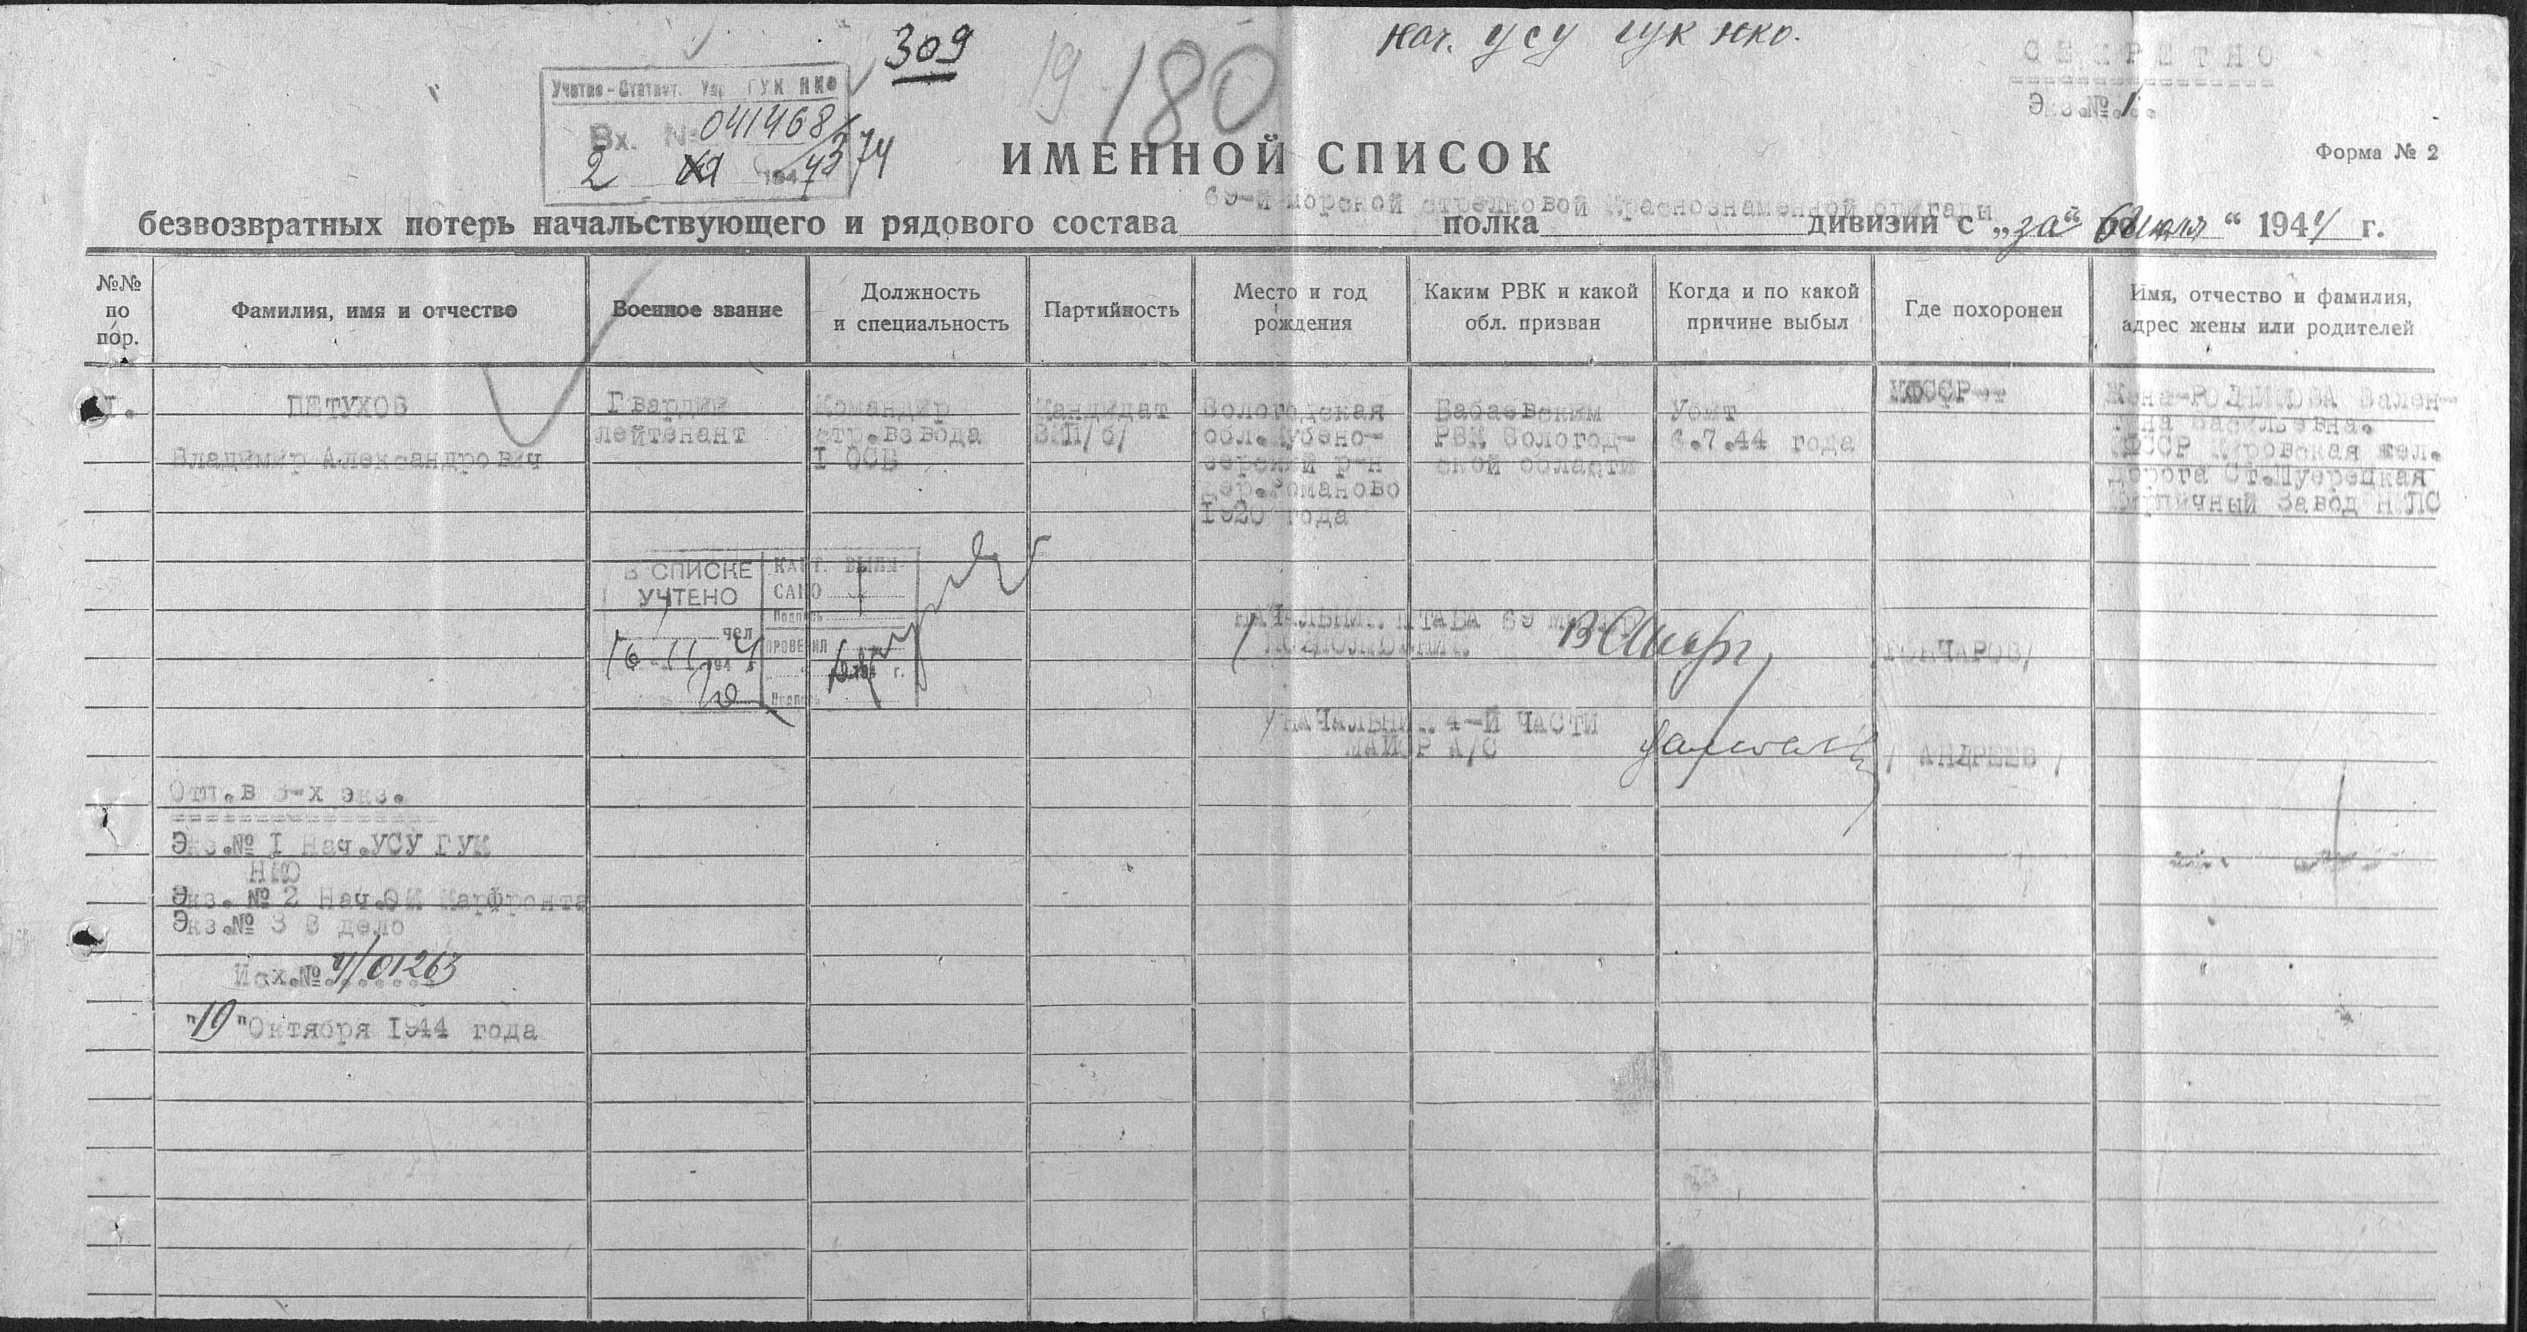 309
19
180
Нач. УСУ ГУК НКО.
СЕКРЕТНО
Экз.№ 1.
Учетно-Статист. Упр ГУК НКО
Вх. № 041468
2 194
74
ИМЕННОЙ СПИСОК
Форма № 2
69-й морской стрелковой Краснознаменной бригады
безвозвратных потерь начальствующего и рядового состава полка дивизии с „за" июля“ 1944 г.
№№ по пор.
Фамилия, имя и отчество
Военное звание
Должность и специальность
Партийность
Место и год рождения
Каким РВК и какой обл. призван
Когда и по какой причине выбыл
Где похоронен
Имя, отчество и фамилия, адрес жены или родителей
1.
ПЕТУХОВ
Владимир Александрович
Гвардии
лейтенант
Командир
стр.взвода
I ОСБ
Кандидат
ВКП/б/
Вологодская
обл.Кубено-
зерский р-н
дер.Романово
1920 года
Бабаевским
РВК Вологод-
ской области
Убит
6.7.44 года
КФССР
Жена-РОДИНОВА Вален-
тина Васильевна.
КФССР Кировская жел.
дорога Ст.Шуерецкая
Кирпичный Завод НПС
В СПИСКЕ
УЧТЕНО
чел
16-11 1944
КАРТ. ВЫПИ-
САНО
Подпись
ПРОВЕРИЛ
194 г.
Подпись
НАЧАЛЬНИК ШТАБА 69
ПОДПОЛКОВНИК
/ГОНЧАРОВ/
НАЧАЛЬНИК 4-Й ЧАСТИ
МАЙОР А/С
/ АНДРЕЕВ /
Отп.в 3-х экз.
Экз.№ I Нач.УСУ ГУК
НКО
Экз. № 2 Нач.ОК Карфронта
Экз.№ 3 В дело
Исх.№ 4/01263
"19"Октября 1944 года